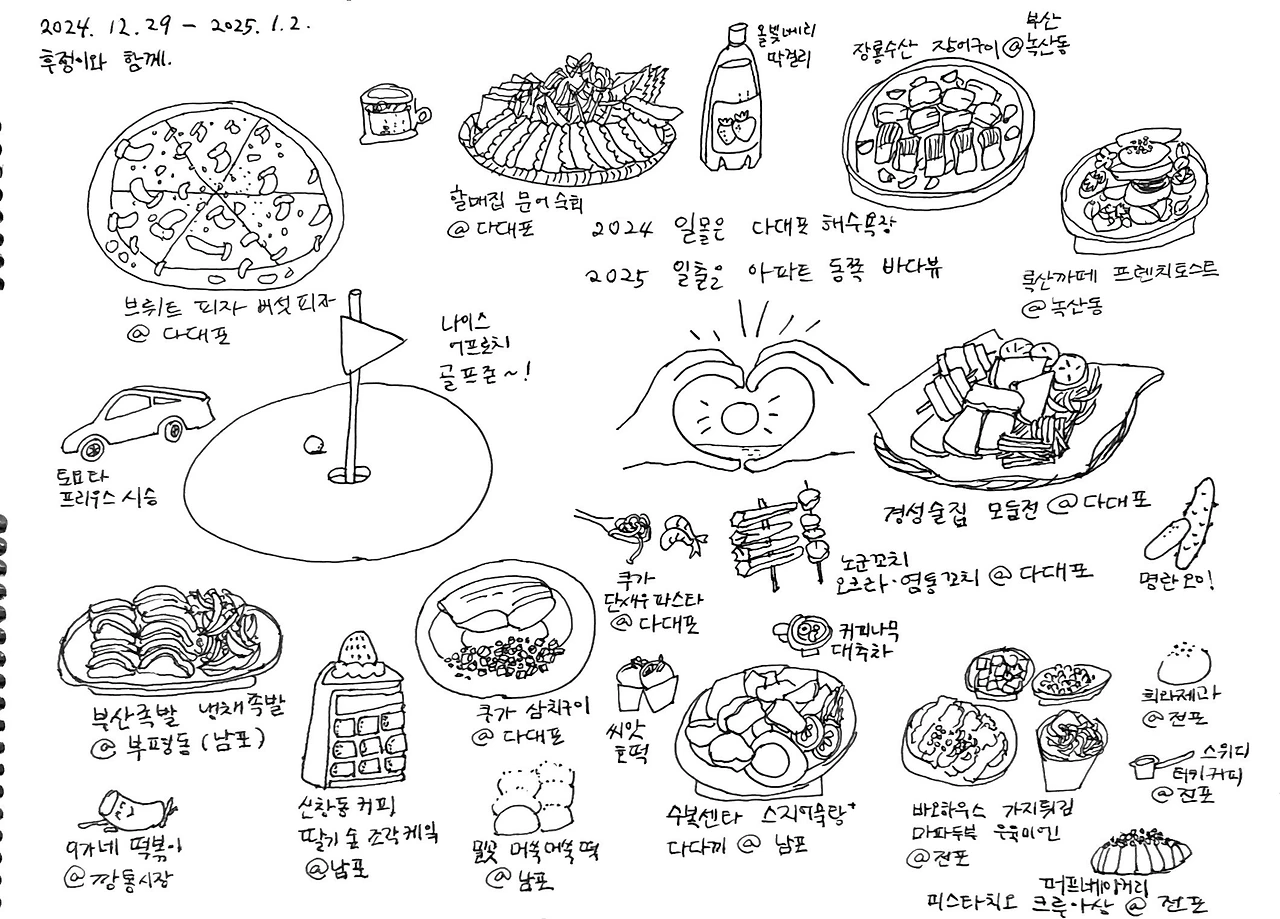 2024. 12. 29 - 2025. 1. 2.
후정이와 함께.
올빛베리
막걸리
부산
장룡수산 장어구이 @ 녹산동
할매집 문어숙회
@ 다대포
2024 일몰은 다대포 해수욕장
2025 일출은 아파트 동쪽 바다뷰
록산까페 프렌치토스트
@ 녹산동
브뤼트 피자 버섯피자
@ 다대포
나이스
어프로치
골프존~!
토요타
프리우스 시승
경성술집 모듬전 @ 다대포
명란오이!
노군꼬치
오크라·염통꼬치 @ 다대포
쿠가
단새우파스타
@ 다대포
커피나무
대추차
부산족발 냉채족발
@ 부평동 (남포)
쿠가 삼치구이
@ 다대포
씨앗
호떡
희라제과
@ 전포
스위디
터키커피
@ 전포
이가네 떡볶이
@ 깡통시장
신창동 커피
딸기 숲 조각케익
@ 남포
머쓱머쓱 떡
@ 남포
수복센타 스지어묵탕+
다다끼 @ 남포
바오하우스 가지튀김
마파두부 우육미엔
@ 전포
퍼프베이커리
피스타치오 크루아상 @ 전포